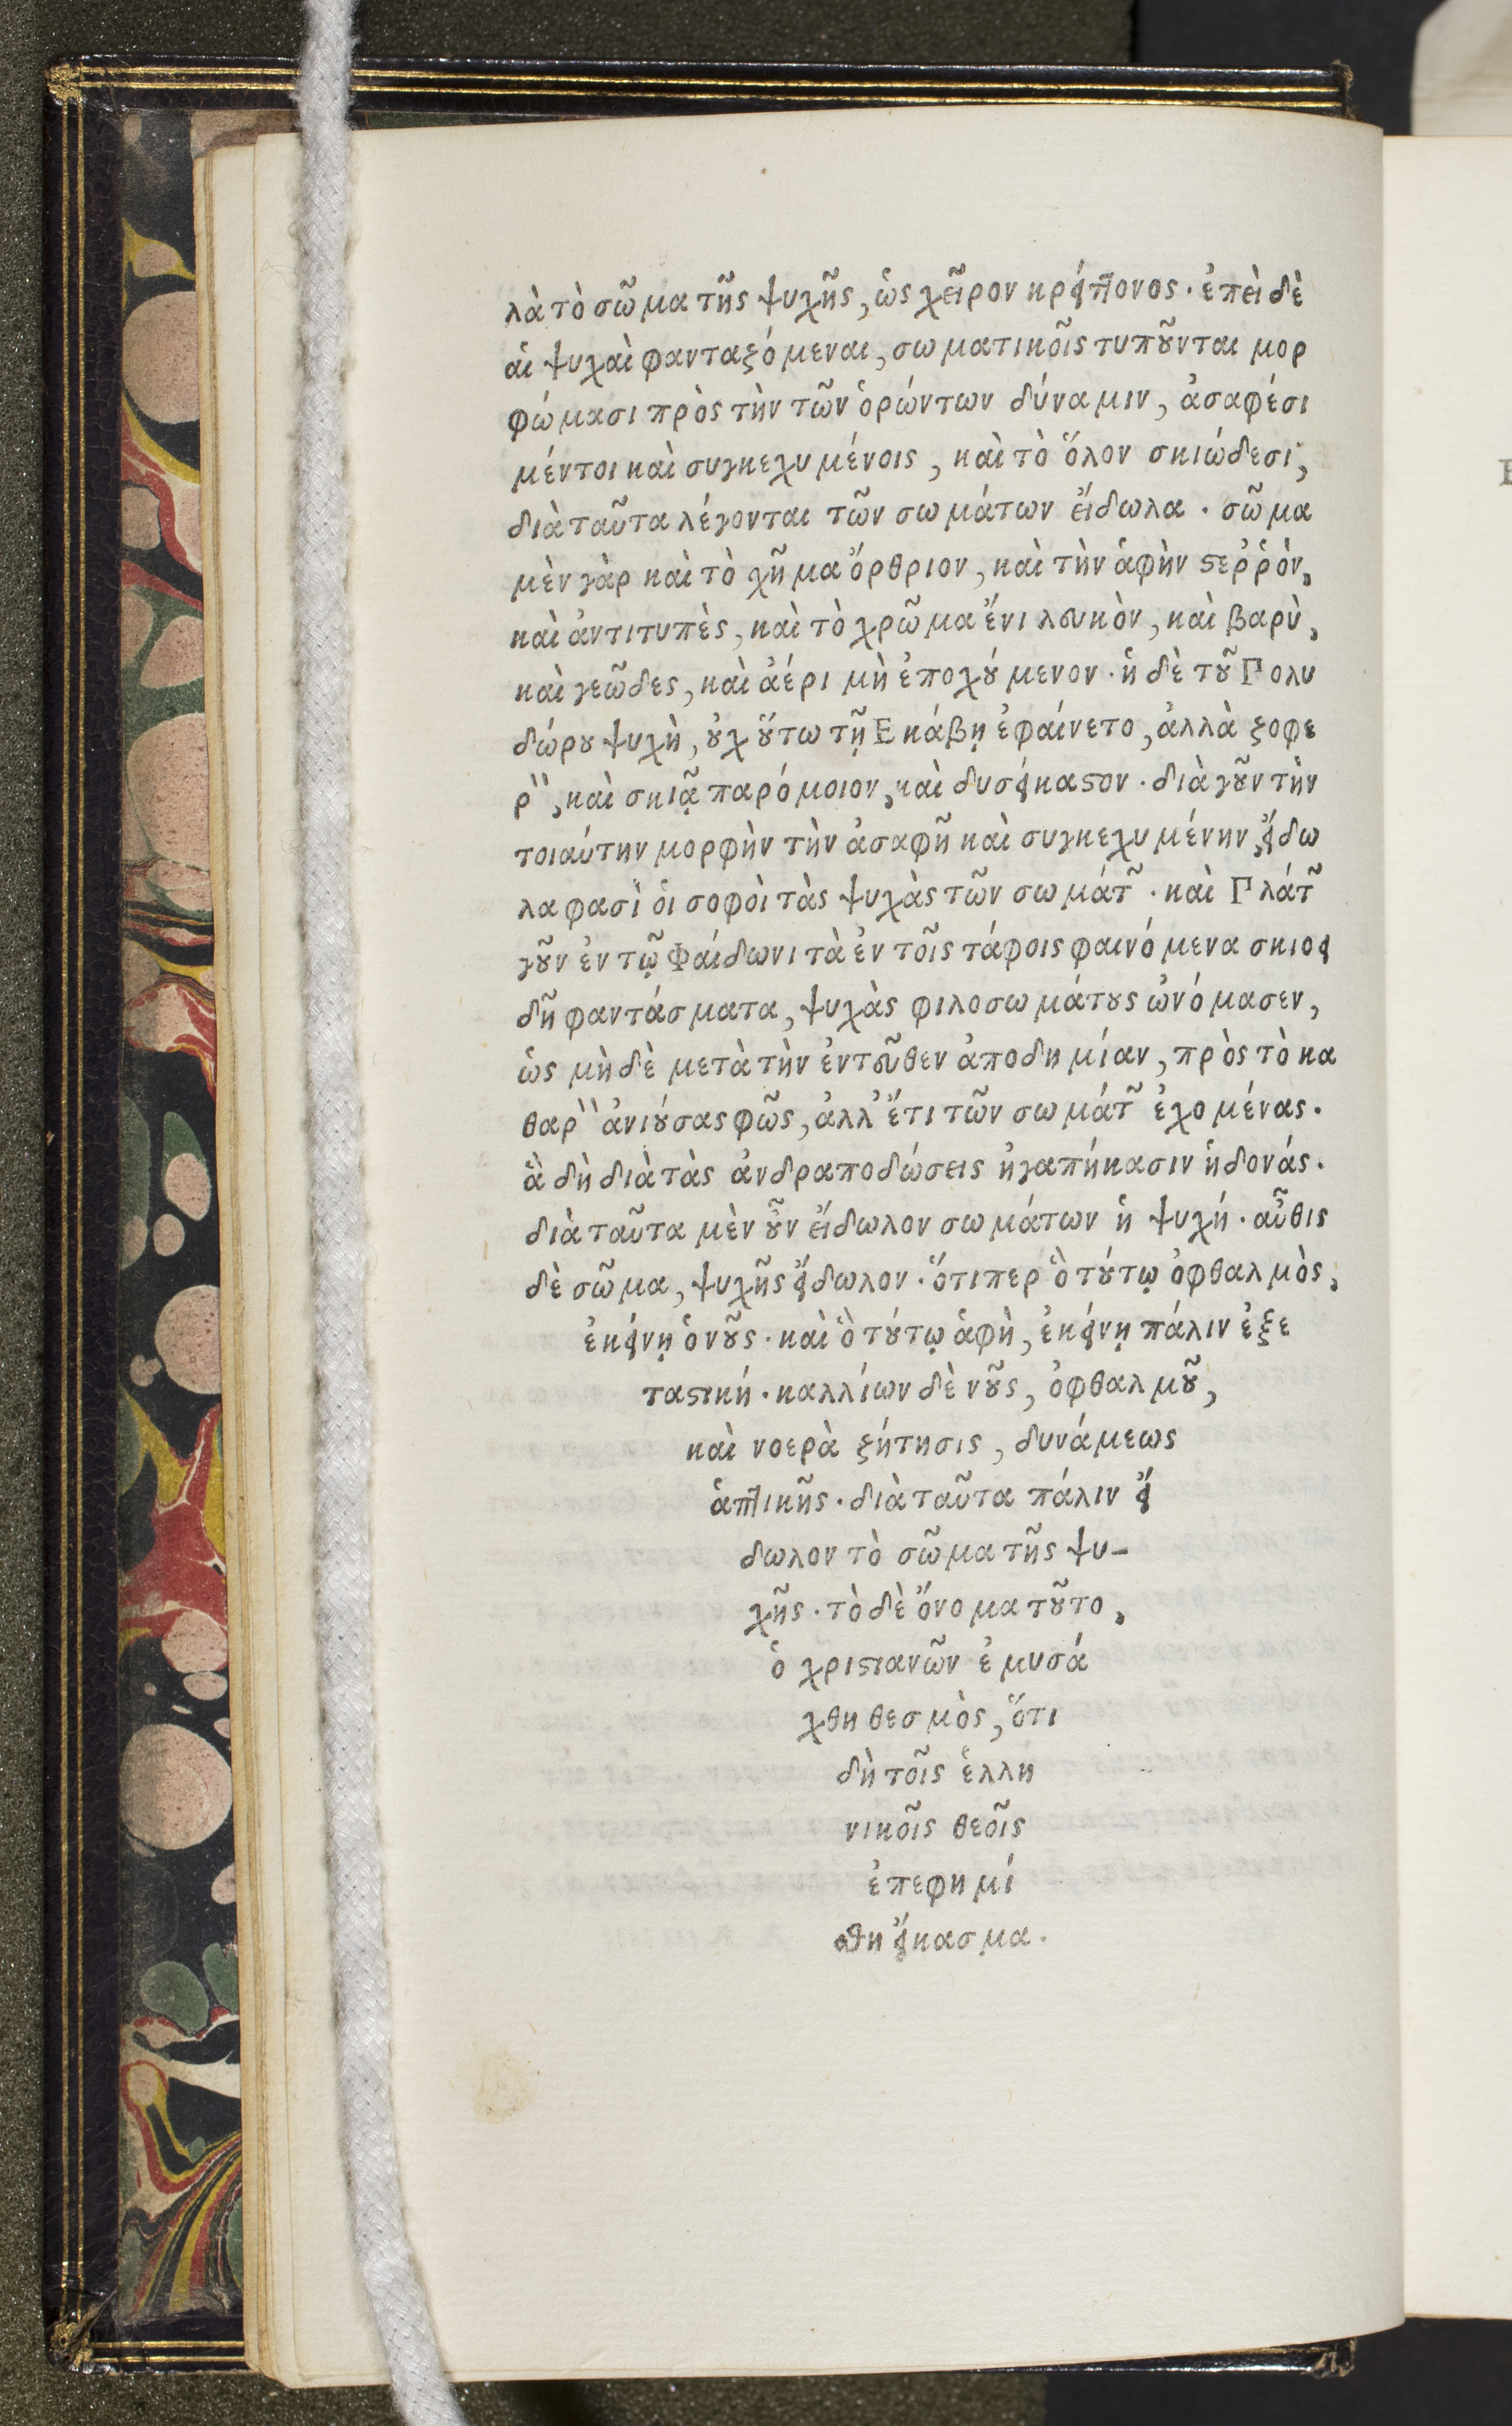 λὰ τὸ σῶμα τῆς ψυχῆς, ὡς χεῖρον κρείττονος· ἐπεὶ δὲ
αἱ ψυχαὶ φανταζόμεναι, σωματικοῖς τυποῦνται μορ
φώμασι πρὸς τὴν τῶν ὁρώντων δύναμιν, ἀσαφέσι
μέντοι καὶ συγκεχυμένοις, καὶ τὸ ὅλον σκιώδεσι,
διὰ ταῦτα λέγονται τῶν σωμάτων εἴδωλα. σῶμα
μὲν γὰρ καὶ τὸ χῆμα ὄρθριον, καὶ τὴν ἁφὴν στεῤῥὸν,
καὶ ἀντιτυπὲς, καὶ τὸ χρῶμα ἔνι λευκὸν, καὶ βαρὺ,
καὶ γεῶδες, καὶ ἀέρι μὴ ἐποχούμενον· ἡ δὲ τοῦ Πολυ
δώρου ψυχὴ, οὐχ οὕτω τῇ Εκάβῃ ἐφαίνετο, ἀλλὰ ζοφε
ρὸν, καὶ σκιᾷ παρόμοιον, καὶ δυσείκαστον· διὰ γοῦν τὴν
τοιαύτην μορφὴν τὴν ἀσαφῆ καὶ συγκεχυμένην, εἴδω
λα φασὶ οἱ σοφοὶ τὰς ψυχὰς τῶν σωμάτων· καὶ Πλάτων
γοῦν ἐν τῷ Φαίδωνι τὰ ἐν τοῖς τάφοις φαινόμενα σκιοει
δῆ φαντάσματα, ψυχὰς φιλοσωμάτους ὠνόμασεν,
ὡς μὴ δὲ μετὰ τὴν ἐντεῦθεν ἀποδημίαν, πρὸς τὸ κα
θαρὸν ἀνιούσας φῶς, ἀλλ' ἔτι τῶν σωμάτων ἐχομένας.
ἃ δὴ διὰ τὰς ἀνδραποδώσεις ἠγαπήκασιν ἡδονάς.
διὰ ταῦτα μὲν οὖν εἴδωλον σωμάτων ἡ ψυχή· αὖθις
δὲ σῶμα, ψυχῆς εἴδωλον· ὅτιπερ ὃ τούτῳ ὀφθαλμὸς,
ἐκείνῃ ὁ νοῦς· καὶ ὃ τούτῳ ἁφὴ, ἐκείνῃ πάλιν ἐξε
ταστική· καλλίων δὲ νοῦς, ὀφθαλμοῦ,
καὶ νοερὰ ζήτησις, δυνάμεως
ἁπτικῆς· διὰ ταῦτα πάλιν εἴ
δωλον τὸ σῶμα τῆς ψυ-
χῆς· τὸ δὲ ὄνομα τοῦτο,
ὁ χριστιανῶν ἐμυσά
χθη θεσμὸς, ὅτι
δὴ τοῖς ἑλλη
νικοῖς θεοῖς
ἐπεφημί
σθη εἴκασμα.